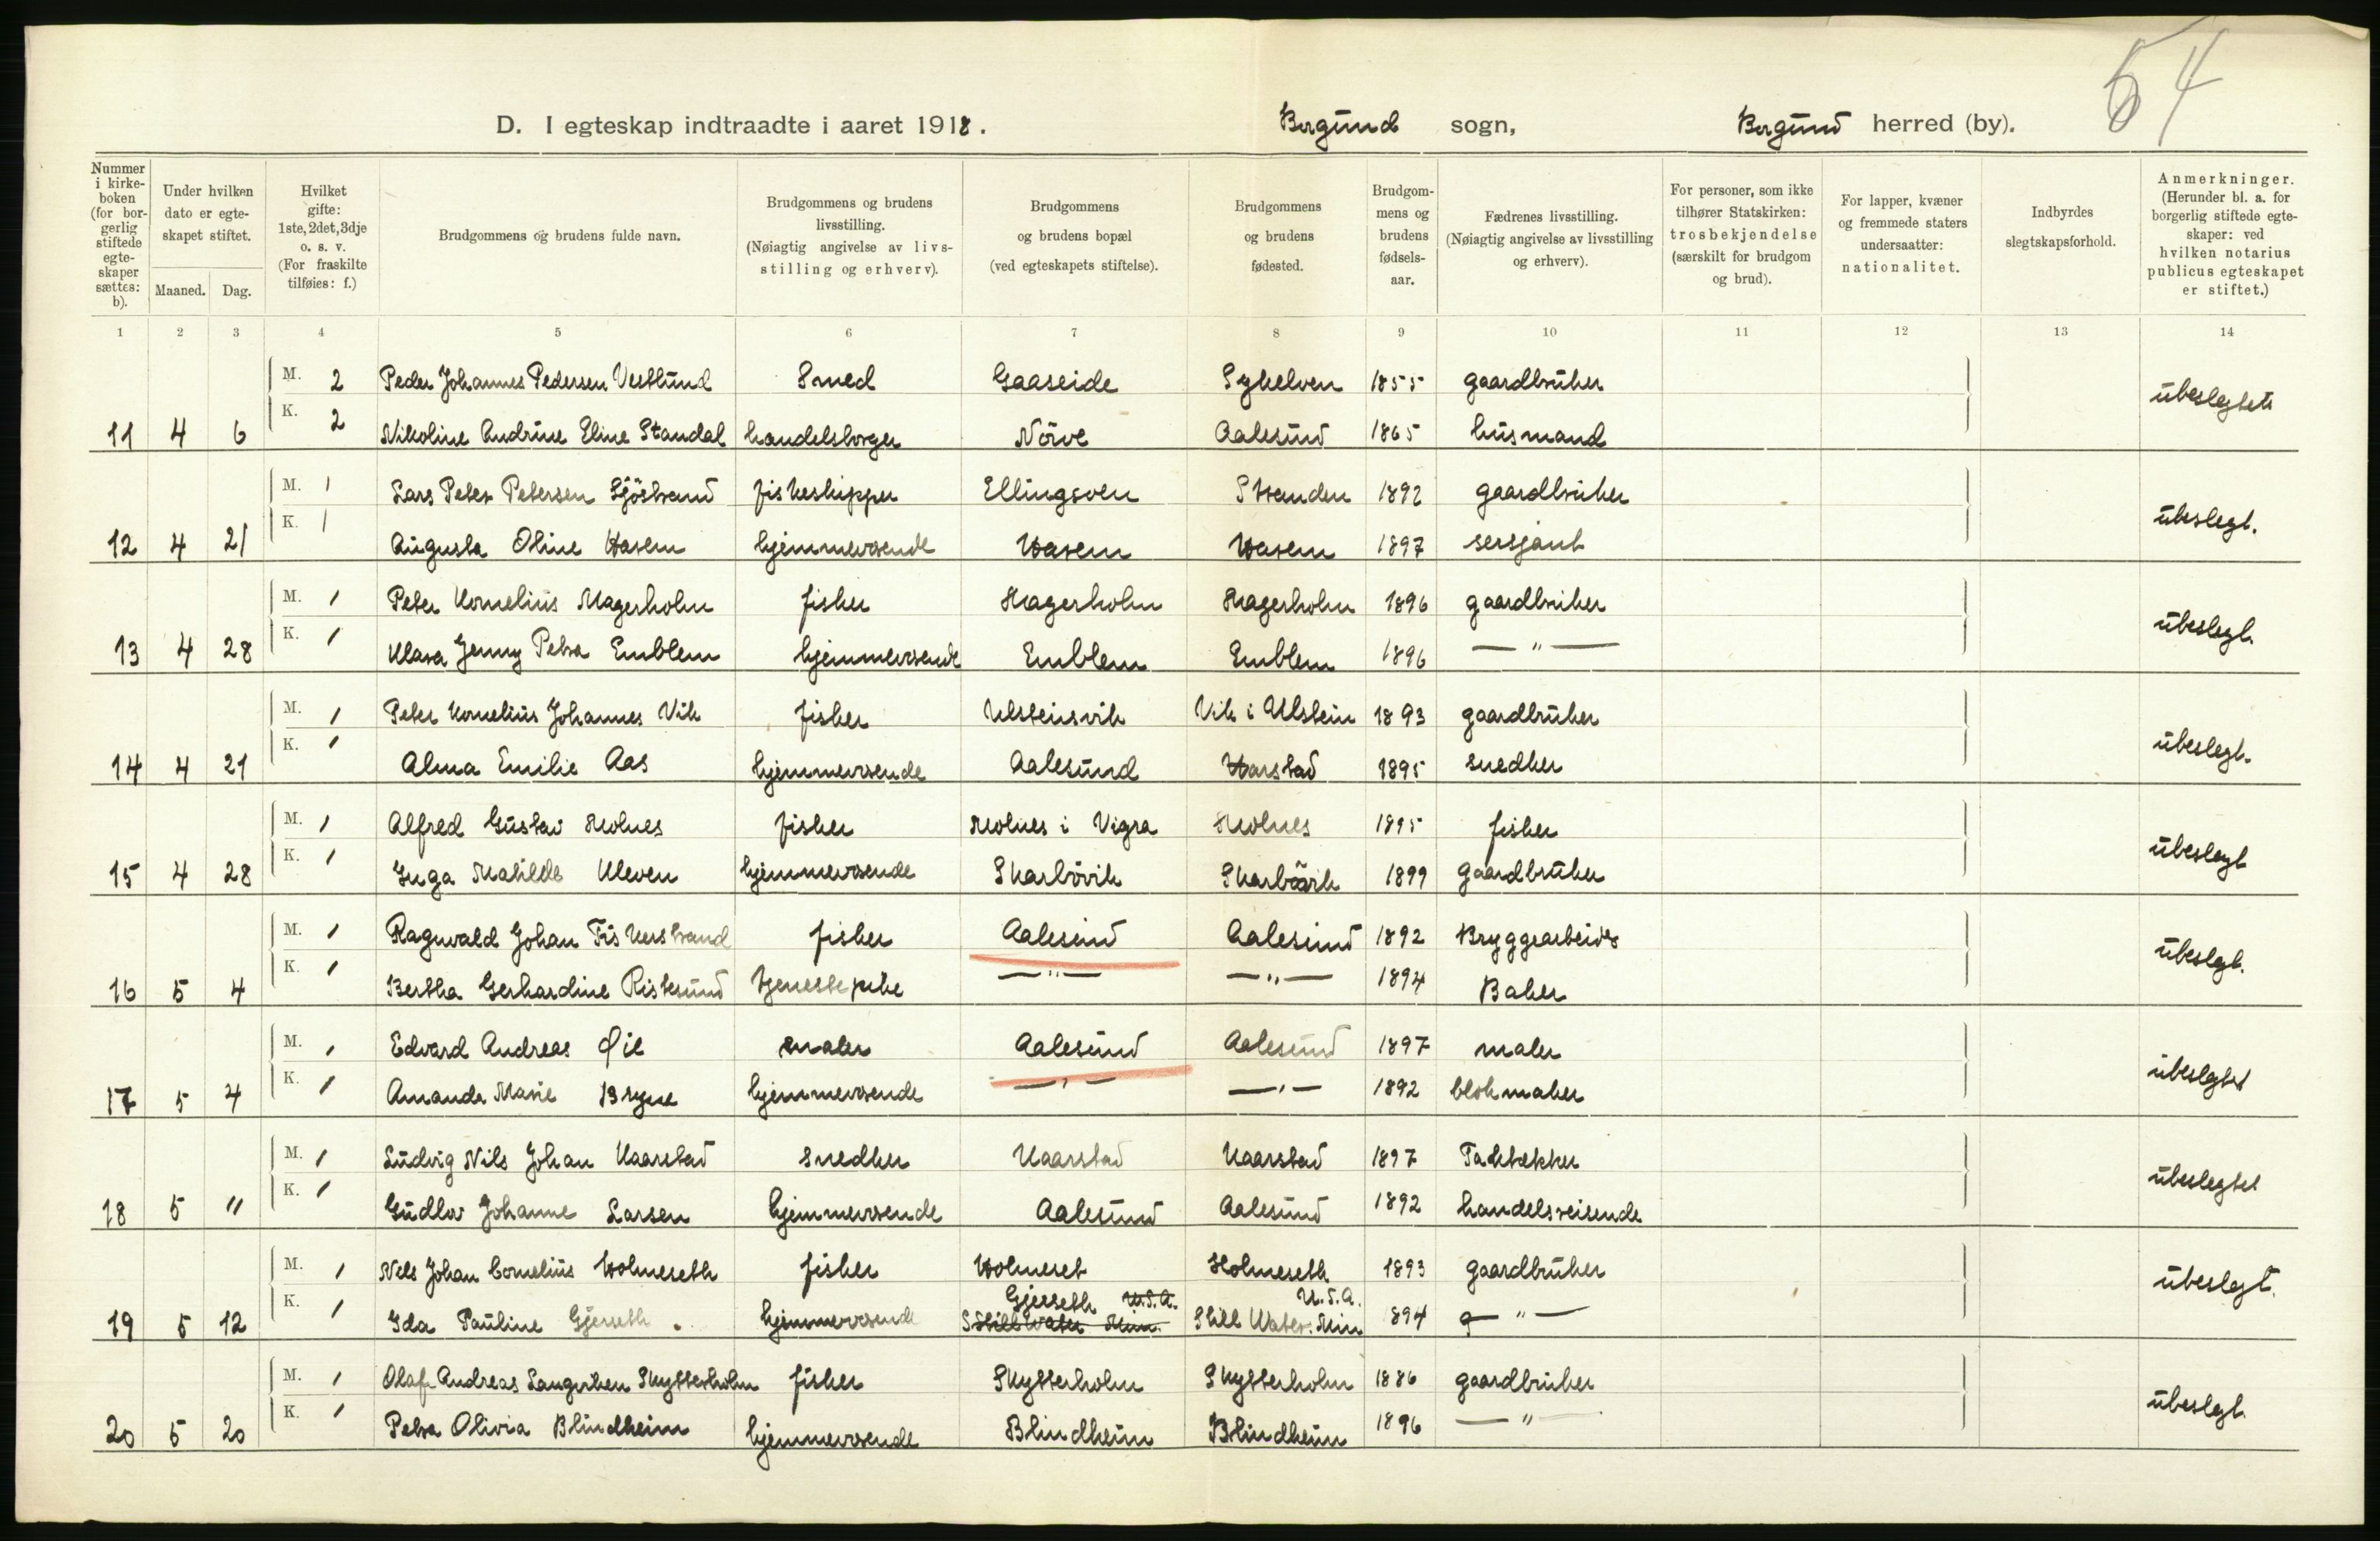 54
D. I egteskap indtraadte i aaret 1918. Borgund sogn, Borgund herred (by).
Nummer i kirke-boken (for bor-gerlig stiftede egte-skaper sættes: b).
Under hvilken dato er egte-skapet stiftet.
Maaned. Dag.
Hvilket gifte: 1ste, 2det, 3dje o. s. v. (For fraskilte tilføies: f.)
Brudgommens og brudens fulde navn.
Brudgommens og brudens livsstilling. (Nøiagtig angivelse av livs-stilling og erhverv).
Brudgommens og brudens bopæl (ved egteskapets stiftelse).
Brudgommens og brudens fødested.
Brudgom-mens og brudens fødsels-aar.
Fædrenes livsstilling. (Nøiagtig angivelse av livsstilling og erhverv).
For personer, som ikke tilhører Statskirken: trosbekjendelse (særskilt for brudgom og brud).
For lapper, kvæner og fremmede staters undersaatter: nationalitet.
Indbyrdes slegtskapsforhold.
Anmerkninger. (Herunder bl. a. for borgerlig stiftede egte-skaper: ved hvilken notarius publicus egteskapet er stiftet.)
1 2 3 4 5 6 7 8 9 10 11 12 13 14
M. 2 Peder Johannes Pedersen Vestlund Smed Gaaseide Sykelven 1855 gaardbruker ubeslegtet
11 4 6 K. 2 Nikoline Andrine Eline Standal handelsborger Nörve Aalesund 1865 husmand
M. 1 Lars Peter Petersen Sjöstrand fiskeskipper Ellingsøen Stranden 1892 gaardbruker ubeslegt.
12 4 21 K. 1 Augusta Oline Hasem hjemmeværende Hasem Hasem 1897 sersjant
M. 1 Peter Kornelius Magerholm fisker Magerholm Magerholm 1896 gaardbruker ubeslegt.
13 4 28 K. 1 Klara Jenny Petra Emblem hjemmeværende Emblem Emblem 1896 — " —
M. 1 Peter Kornelius Johannes Vik fisker Ulsteinsvik Vik i Ulstein 1893 gaardbruker ubeslegt.
14 4 21 K. 1 Alma Emilie Aas hjemmeværende Aalesund Harstad 1895 snedker
M. 1 Alfred Gustav Molnes fisker Molnes i Vigra Molnes 1895 fisker ubeslegt
15 4 28 K. 1 Inga Matilde Kleven hjemmeværende Skarbövik Skarbövik 1899 gaardbruker
M. 1 Ragnvald Johan Fiskerstrand fisker Aalesund Aalesund 1892 Bryggearbeider ubeslegt.
16 5 4 K. 1 Bertha Gerhardine Ristesund tjenestepike — " — — " — 1894 Baker
M. 1 Edvard Andreas Øie maler Aalesund Aalesund 1897 maler ubeslegtet
17 5 4 K. 1 Amanda Marie Bryne hjemmeværende — " — — " — 1892 blokmaker
M. 1 Ludvig Nils Johan Kaarstad snedker Kaarstad Kaarstad 1897 Taktekker ubeslegtet
18 5 11 K. 1 Gudlov Johanne Larsen hjemmeværende Aalesund Aalesund 1892 handelsreisende
M. 1 Nils Johan Cornelius Holmeseth fisker Holmeset Holmeseth 1893 gaardbruker ubeslegt.
Gjerseth U.S.A. U.S.A.
19 5 12 K. 1 Ida Pauline Gjerseth. hjemmeværende Still Water Min. Still Water. Min 1894 — " —
M. 1 Olaf Andreas Langerken Skytterholm fisker Skytterholm Skytterholm 1886 gaardbruker ubeslegt.
20 5 20 K. 1 Petra Olivia Blindheim hjemmeværende Blindheim Blindheim 1896 — " —